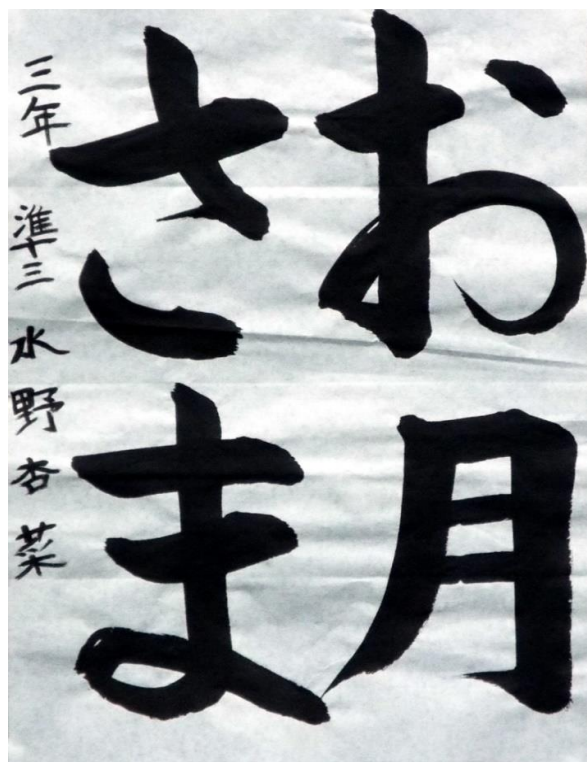 お月
さま
三年 準三 水野杏菜